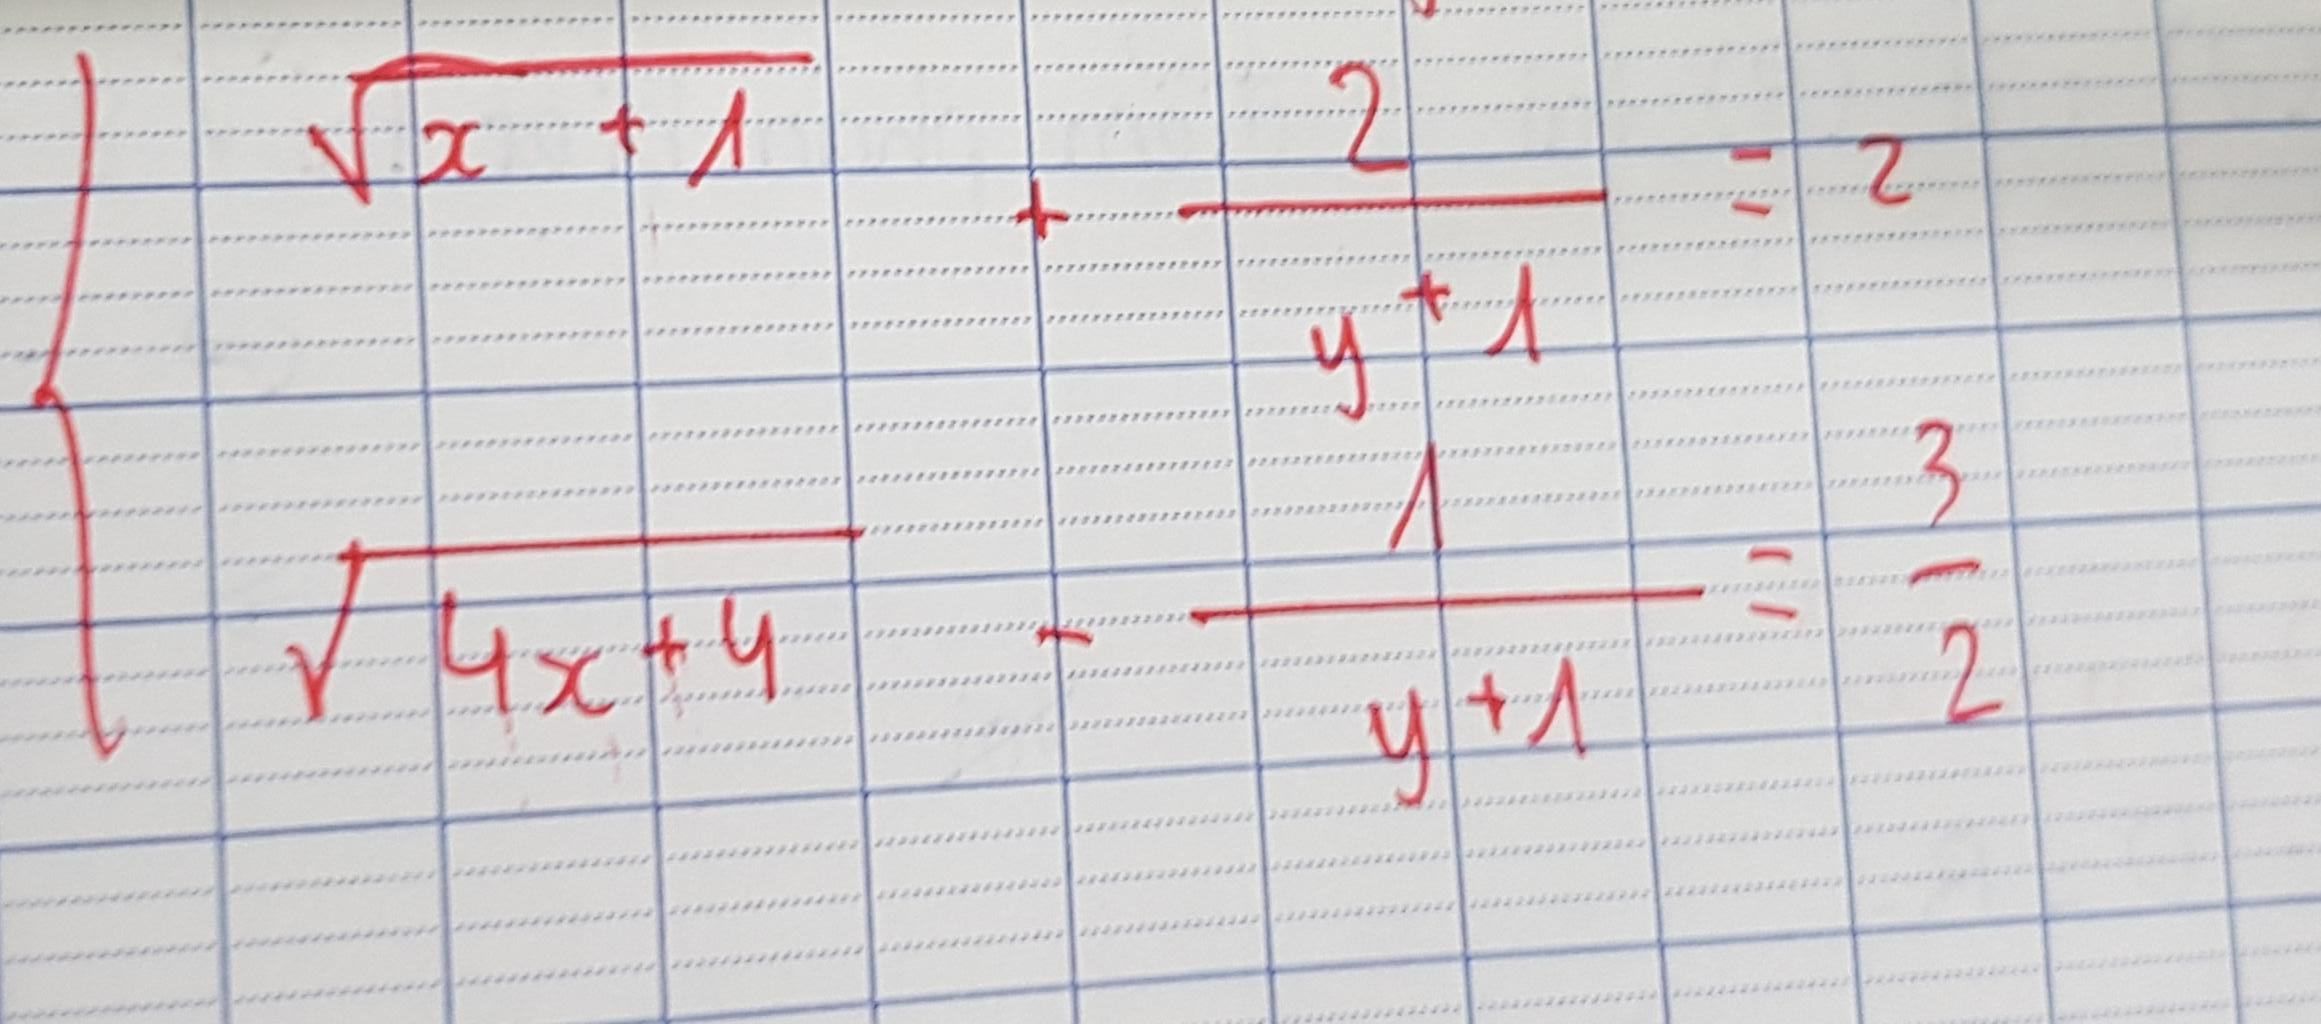 √(x + 1) + 2/(y + 1) = 2
√(4x + 4) - 1/(y + 1) = 3/2